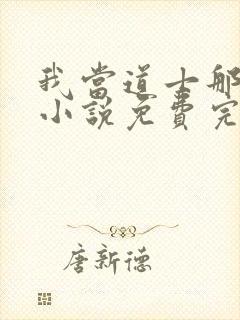 我當道士那
小說免費完
唐新德